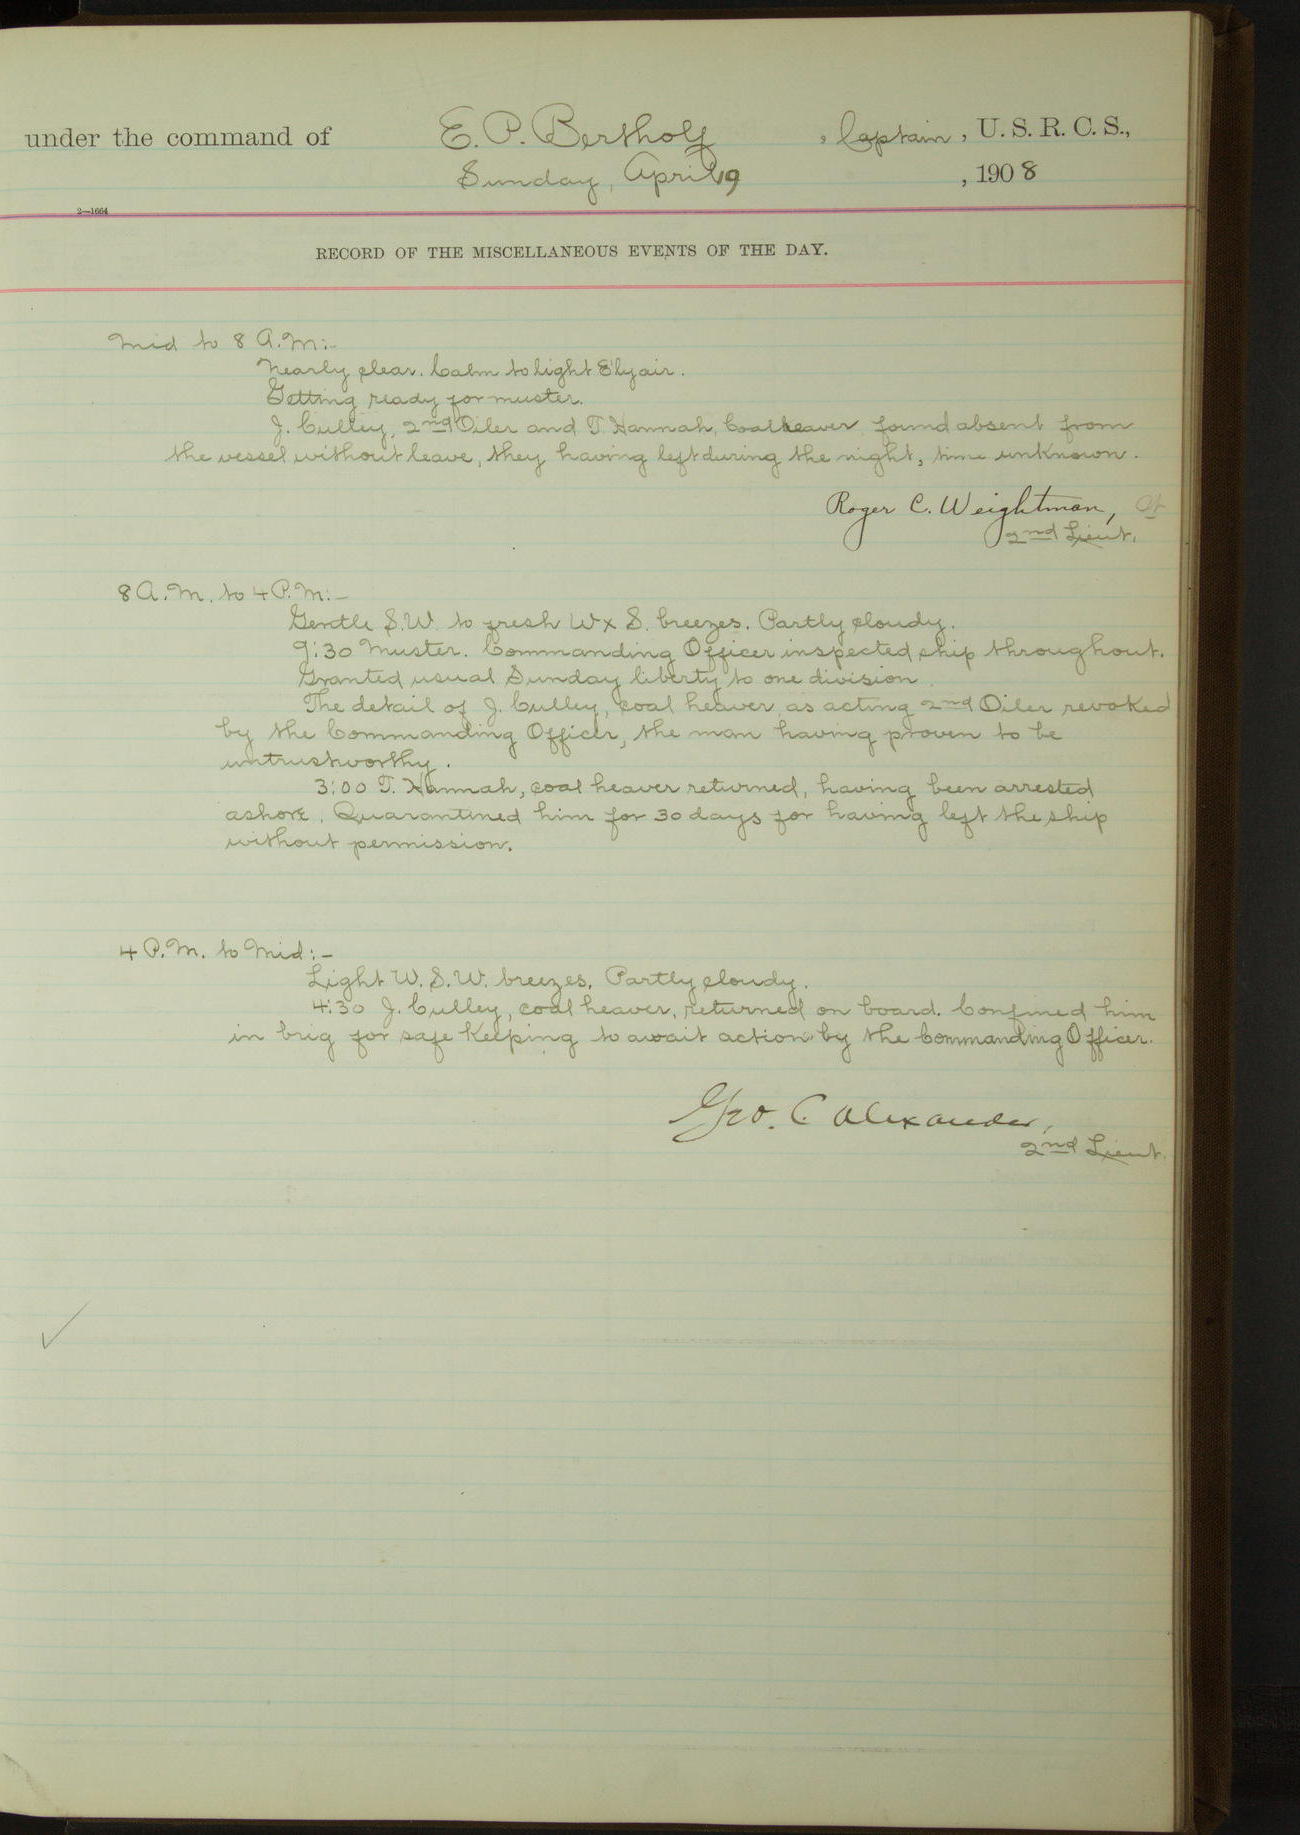 under the command of E. P. Bertholf, Captain, U. S. R. C. S.,
Sunday, April 19, 1908
2—1664
RECORD OF THE MISCELLANEOUS EVENTS OF THE DAY.
Mid to 8 A.M:-
Nearly clear. Calm to light E'ly air.
Getting ready for muster.
J. Culley, 2nd Oiler and T. Hannah, Coal heaver found absent from
the vessel without leave, they having left during the night, time unknown.
Roger C. Weightman,
2nd Lieut.
8 A.M. to 4 P.M:-
Gentle S.W. to fresh W x S. breezes. Partly cloudy.
9:30 Muster. Commanding Officer inspected ship throughout.
Granted usual Sunday liberty to one division.
The detail of J. Culley, coal heaver, as acting 2nd Oiler revoked
by the Commanding Officer, the man having proven to be
untrustworthy.
3:00 T. Hannah, coal heaver returned, having been arrested
ashore. Quarantined him for 30 days for having left the ship
without permission.
4 P.M. to Mid:-
Light W. S. W. breezes. Partly cloudy.
4:30 J. Culley, coal heaver, returned on board. Confined him
in brig for safe keeping to await action by the Commanding Officer.
Geo. C. Alexander,
2nd Lieut.